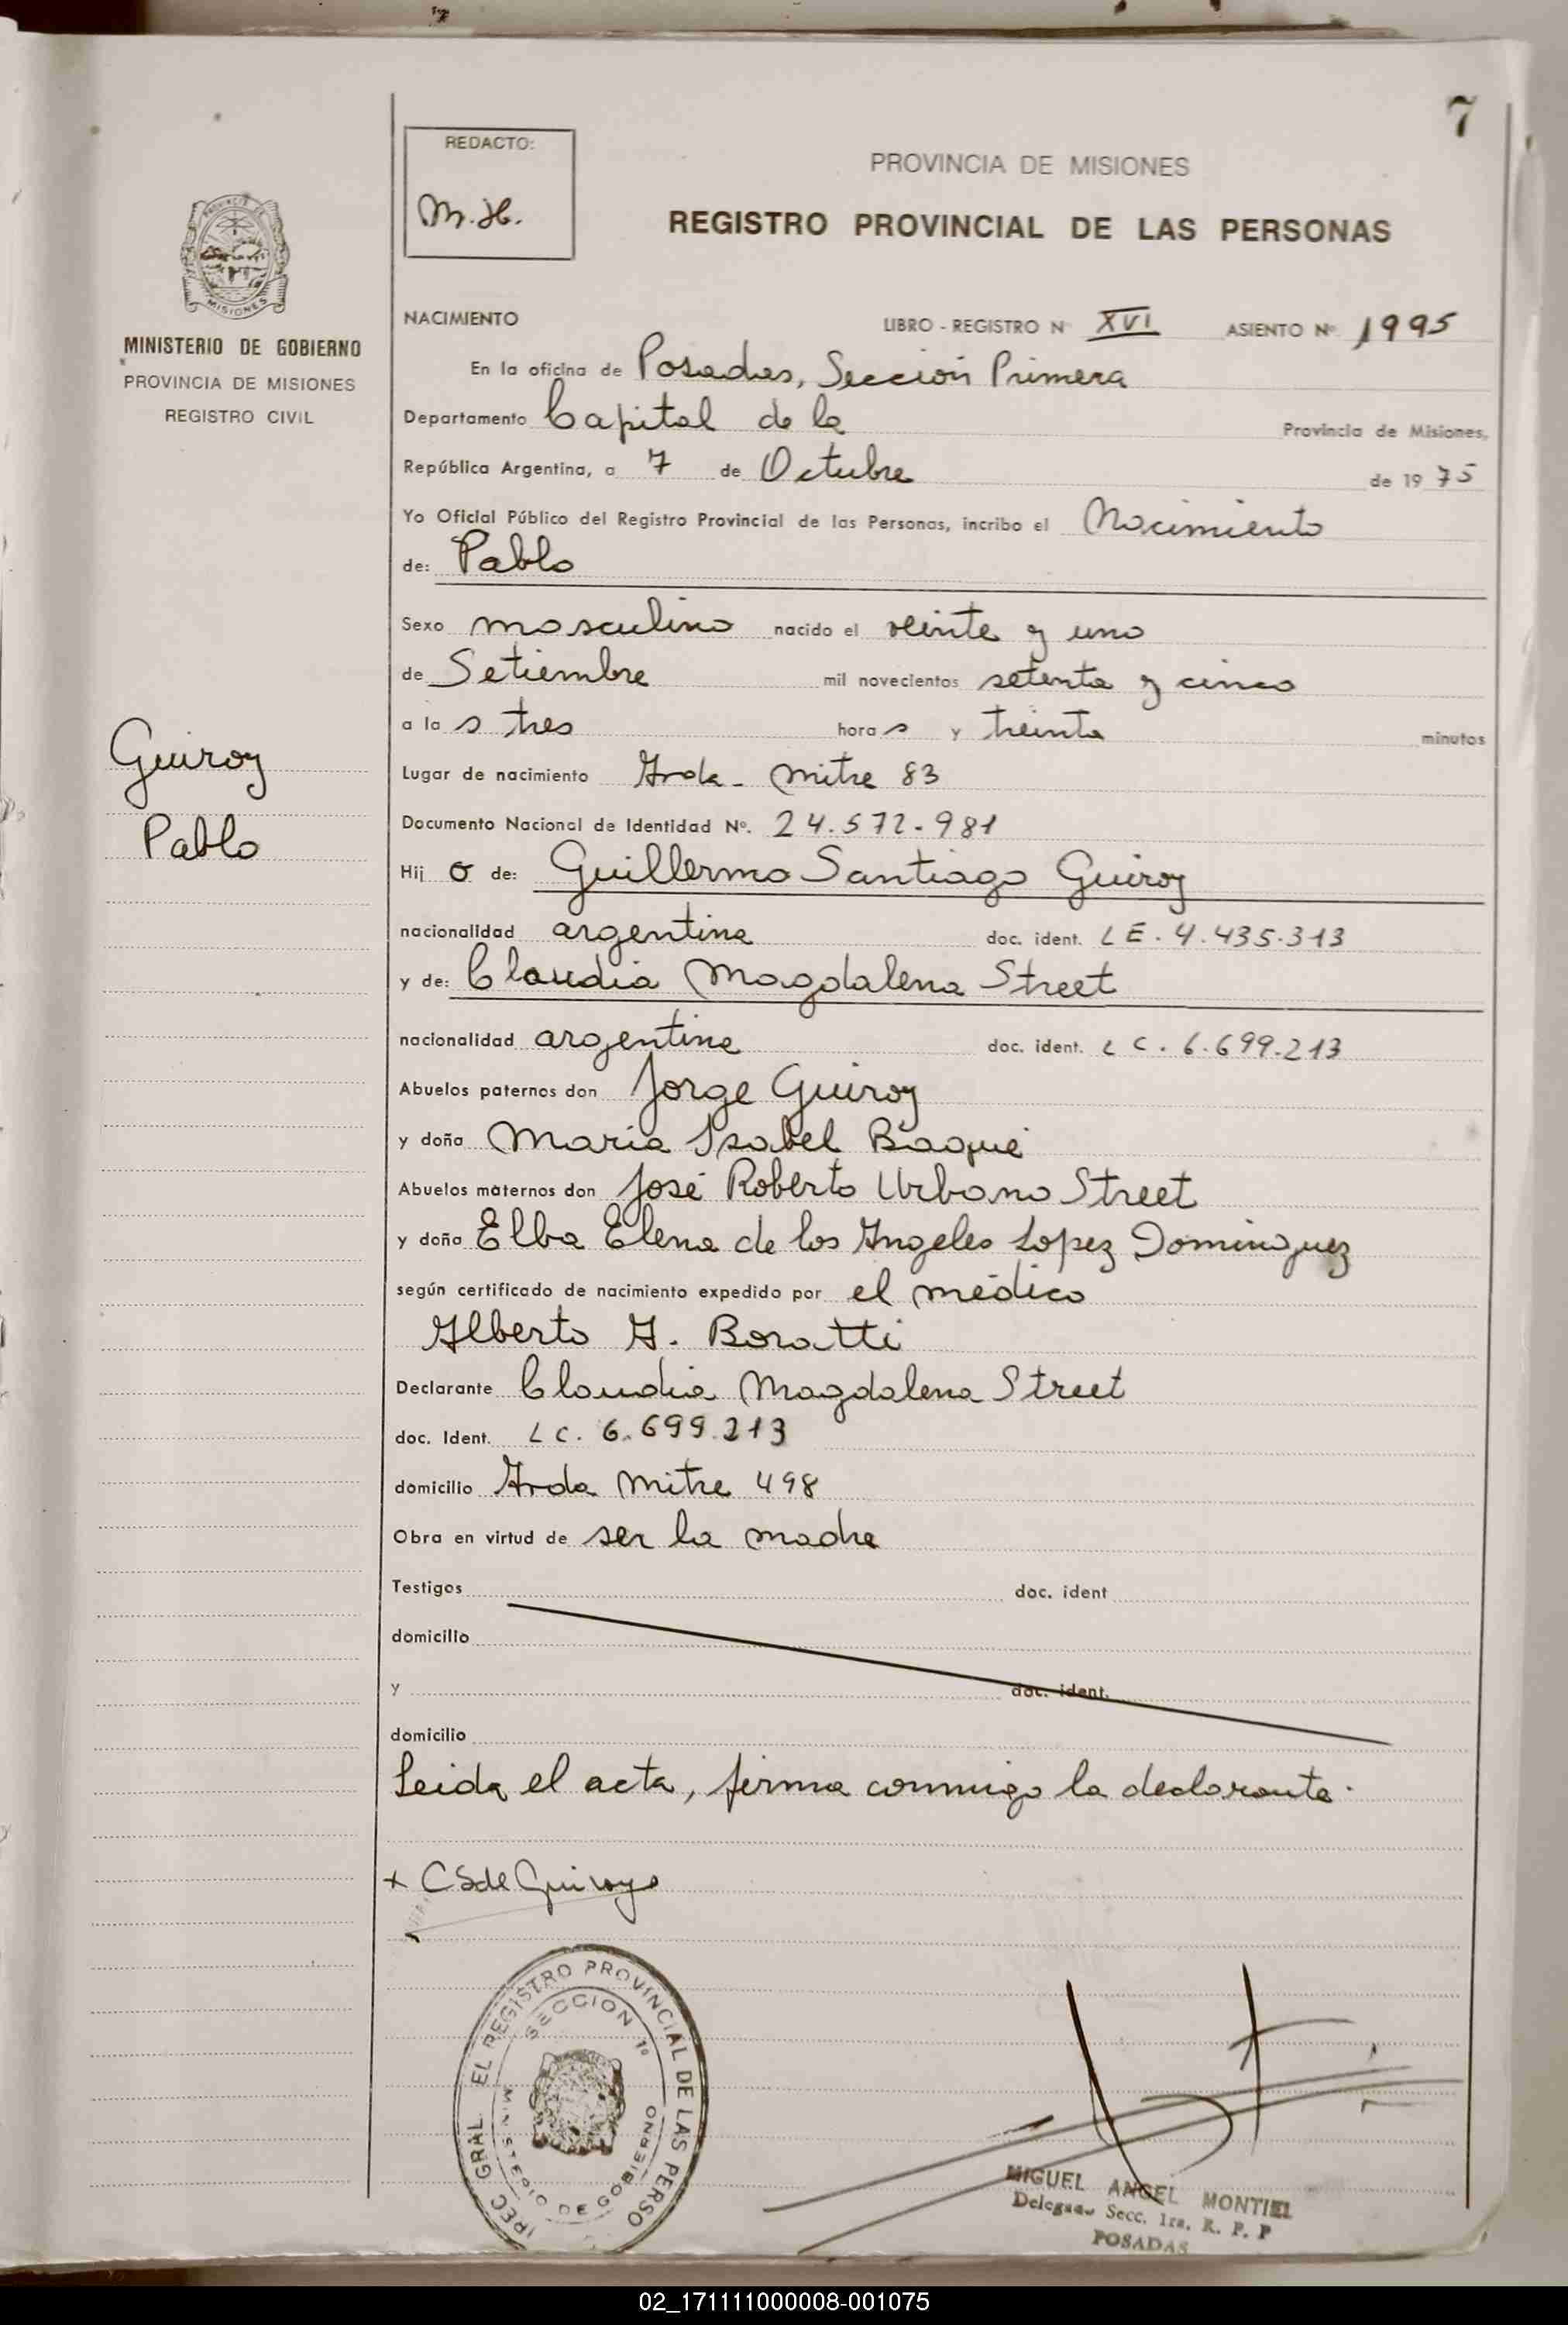 7
REDACTO:
M.H.
PROVINCIA DE MISIONES
REGISTRO PROVINCIAL DE LAS PERSONAS
MISIONES
MINISTERIO DE GOBIERNO
PROVINCIA DE MISIONES
REGISTRO CIVIL
Guiroy
Pablo
NACIMIENTO LIBRO - REGISTRO Nº XVI ASIENTO Nº 1995
En la oficina de Posadas, Sección Primera
Departamento Capital de la Provincia de Misiones,
República Argentina, a 7 de Octubre de 1975
Yo Oficial Público del Registro Provincial de las Personas, incribo el Nacimiento
de: Pablo
Sexo masculino nacido el veinte y uno
de Setiembre mil novecientos setenta y cinco
a las tres horas y treinta minutos
Lugar de nacimiento Avda. Mitre 83
Documento Nacional de Identidad Nº. 24.572.981
Hijo de: Guillermo Santiago Guiroy
nacionalidad argentina doc. ident. LE. 4.435.313
y de: Claudia Magdalena Street
nacionalidad argentina doc. ident. LC. 6.699.213
Abuelos paternos don Jorge Guiroy
y doña María Isabel Baqué
Abuelos maternos don José Roberto Urbano Street
y doña Elba Elena de los Angeles Lopez Dominguez
según certificado de nacimiento expedido por el médico
Alberto A. Boratti
Declarante Claudia Magdalena Street
doc. Ident. LC. 6.699.213
domicilio Avda Mitre 498
Obra en virtud de ser la madre
Testigos doc. ident
domicilio
y doc. ident.
domicilio
Leida el acta, firma conmigo la declarante.
+ CSde Guiroy
EL REGISTRO PROVINCIAL DE LAS PERSO
SECCION 1º
MINISTERIO DE GOBIERNO
IREC GRAL
MIGUEL ANGEL MONTIEL
Delegado Secc. 1ra. R. P. P
POSADAS
02_171111000008-001075